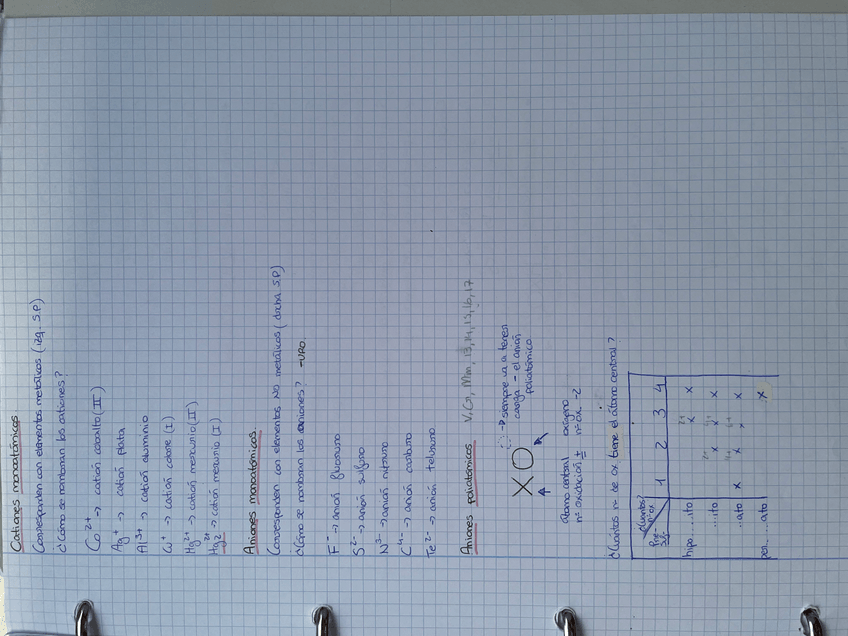 Cationes monoatómicos
Corresponden con elementos metálicos (izq S.P)
¿Cómo se nombran los cationes?
Co²⁺ -> catión cobalto (II)
Ag⁺ -> catión plata
Al³⁺ -> catión aluminio
Cu⁺ -> catión cobre (I)
Hg²⁺ -> catión mercurio (II)
Hg₂²⁺ -> catión mercurio (I)
Aniones monoatómicos.
Corresponden con elementos NO metálicos (dcha S.P)
¿Cómo se nombran los aniones? -URO
F⁻ -> anión fluoruro
S²⁻ -> anión sulfuro
N³⁻ -> anión nitruro
C⁴⁻ -> anión carburo
Te²⁻ -> anión telururo
Aniones poliatómicos V, Cr, Mn, 13, 14, 15, 16, 17
-> siempre va a tener
carga - el anión
poliatómico
XO
átomo central oxígeno
nº oxidación + nº ox -2
¿Cuántos nº de ox tiene el átomo central?
¿Cuántos? nº ox 1 2 3 4
Pre- Suf-
hipo.....ito x x
.....ito x x x
.....ato x x x x
per.....ato x